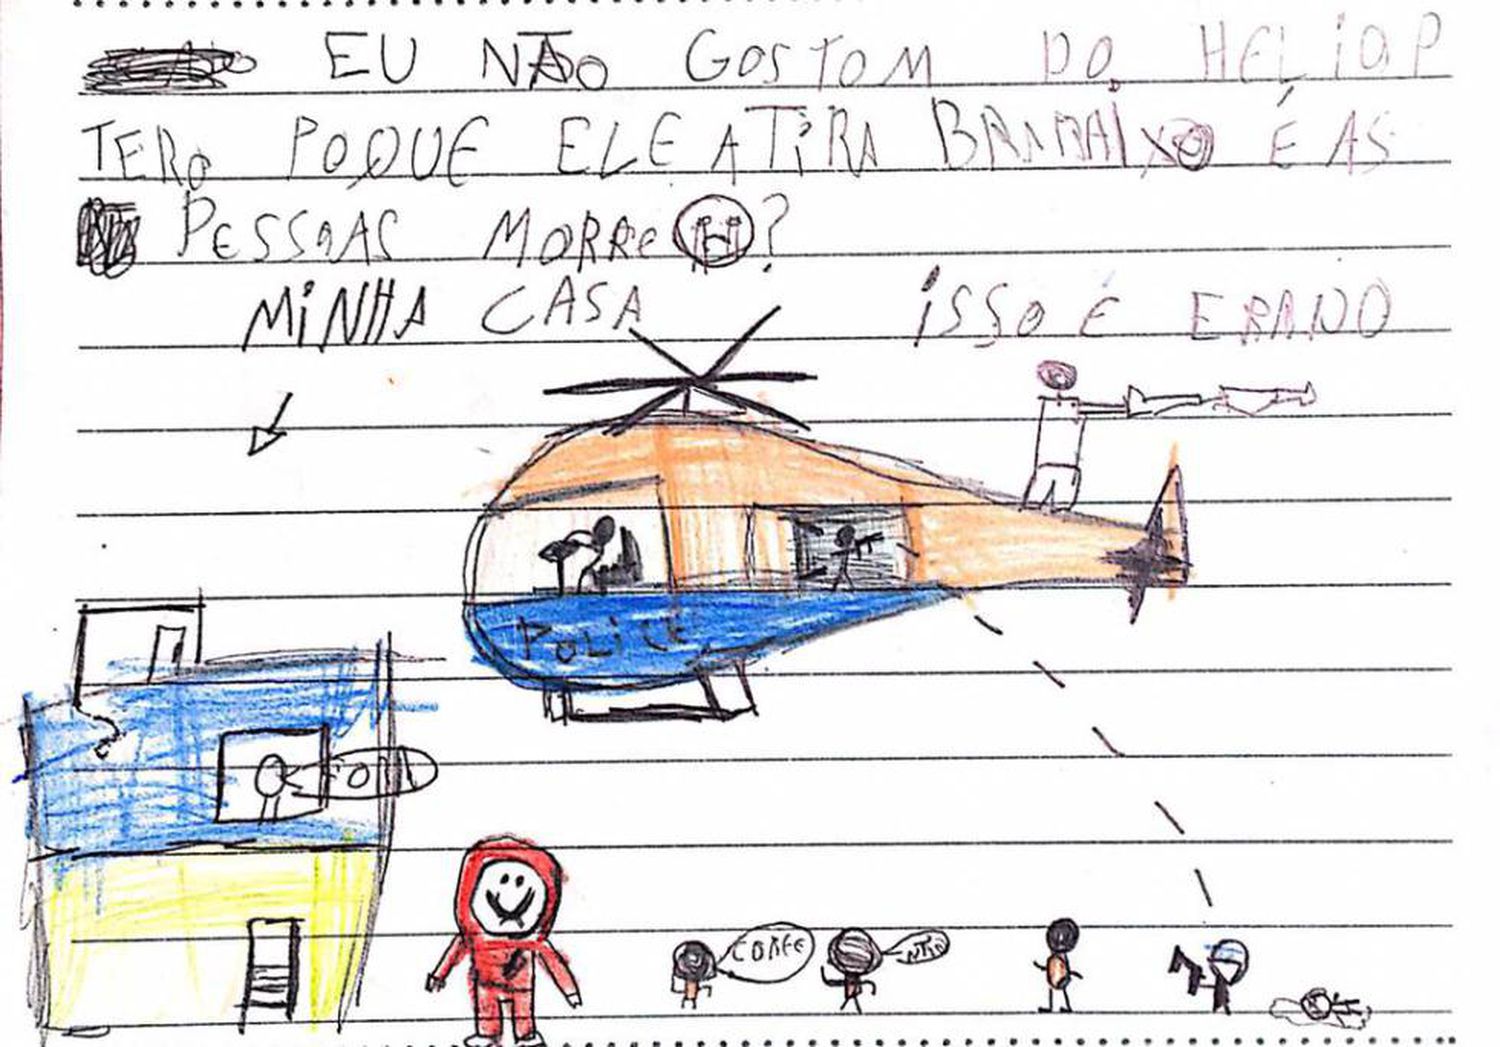 EU NÃO GOSTOM DO HELIOP
TERO POQUE ELE ATIRA BRABAIXO É AS
PESSOAS MORRE ?
MINHA CASA ISSO É ERADO
POLICE
CORRE
NÃO